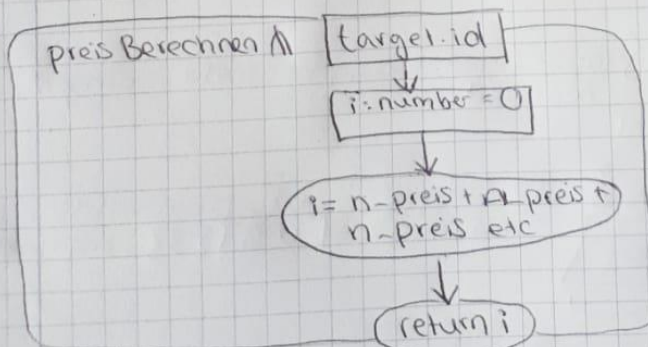 preis Berechnen
target.id
i: number = 0
i = n-preis + n-preis +
n-preis etc
return i